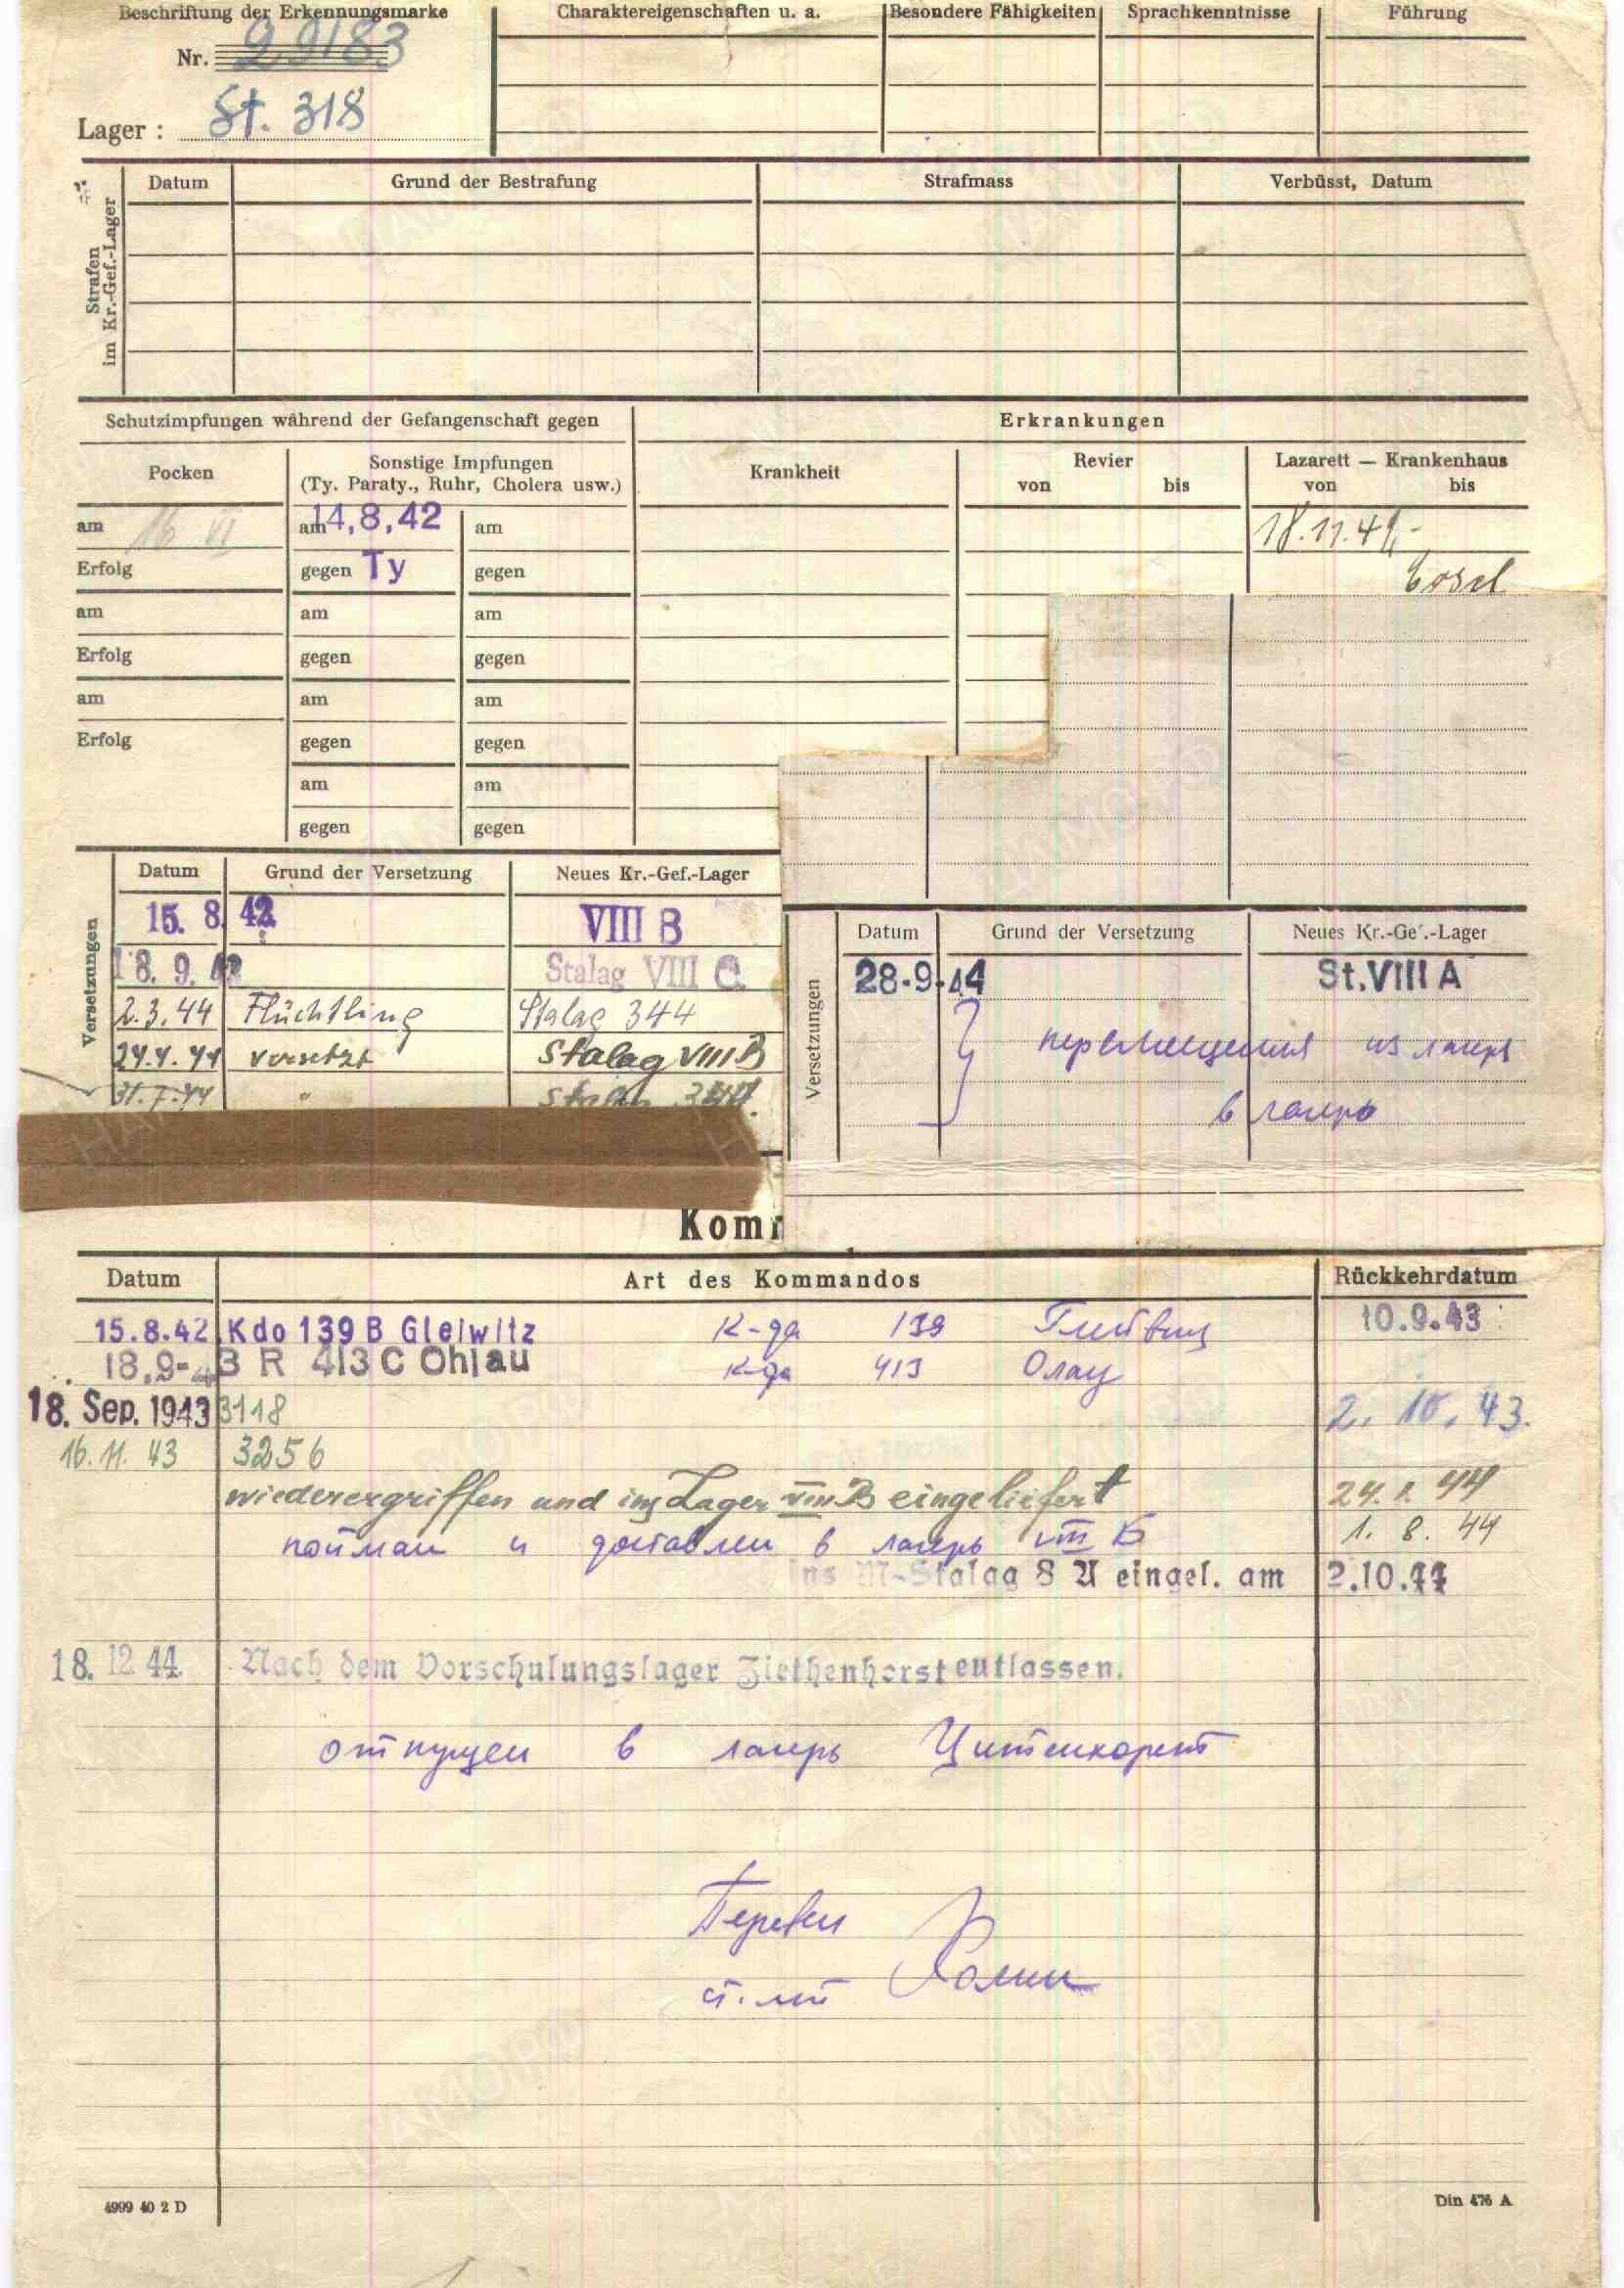 Beschriftung der Erkennungsmarke
Nr. 29183
Lager : St. 318
Charaktereigenschaften u. a. Besondere Fähigkeiten Sprachkenntnisse Führung
Strafen im Kr.-Gef.-Lager
Datum Grund der Bestrafung Strafmass Verbüsst, Datum
Schutzimpfungen während der Gefangenschaft gegen Erkrankungen
Pocken Sonstige Impfungen (Ty. Paraty., Ruhr, Cholera usw.) Krankheit Revier Lazarett — Krankenhaus
von bis von bis
am 16 VI am 14,8,42 am 18.11.44-
Erfolg gegen Ty gegen Cosel
am am am
Erfolg gegen gegen
am am am
Erfolg gegen gegen
am am
gegen gegen
Versetzungen
Datum Grund der Versetzung Neues Kr.-Gef.-Lager
15. 8. 42 VIII B
18. 9. 42 Stalag VIII C
2.3.44 Flüchtling Stalag 344
24.4.44 versetzt Stalag VIII B
31.7.44 " Stalag 344.
Versetzungen
Datum Grund der Versetzung Neues Kr.-Gef.-Lager
28-9-44 St.VIII A
перемещения из лагеря
в лагерь
Komm
Datum Art des Kommandos Rückkehrdatum
15.8.42 Kdo 139 B Gleiwitz К-да 139 Глейвиц 10.9.43
18,9- B R 413 C Ohlau К-да 413 Олау
18. Sep. 1943 3118 2. 10. 43.
16.11.43 3256
wiederergriffen und ins Lager VIII B eingeliefert 24. 2. 44
пойман и доставлен в лагерь VIII Б 1. 8. 44
ins M-Stalag 8 A eingel. am 2.10.44
18. 12 44. Nach dem Vorschulungslager Ziethenhorst entlassen.
отпущен в лагерь Цитенхорст
Перевел
ст. л-т
4999 40 2 D Din 476 A